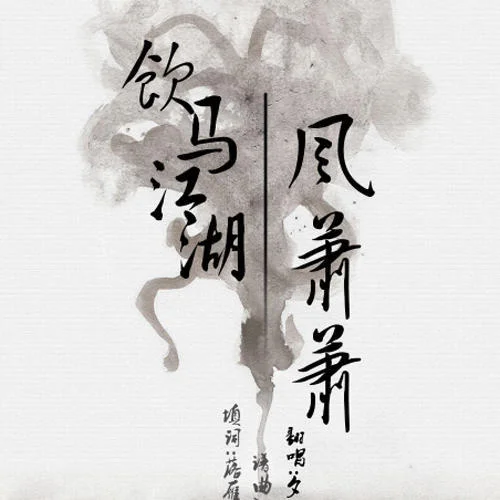 风萧萧
饮马江湖
翻唱：夕
谱曲
填词：落雁